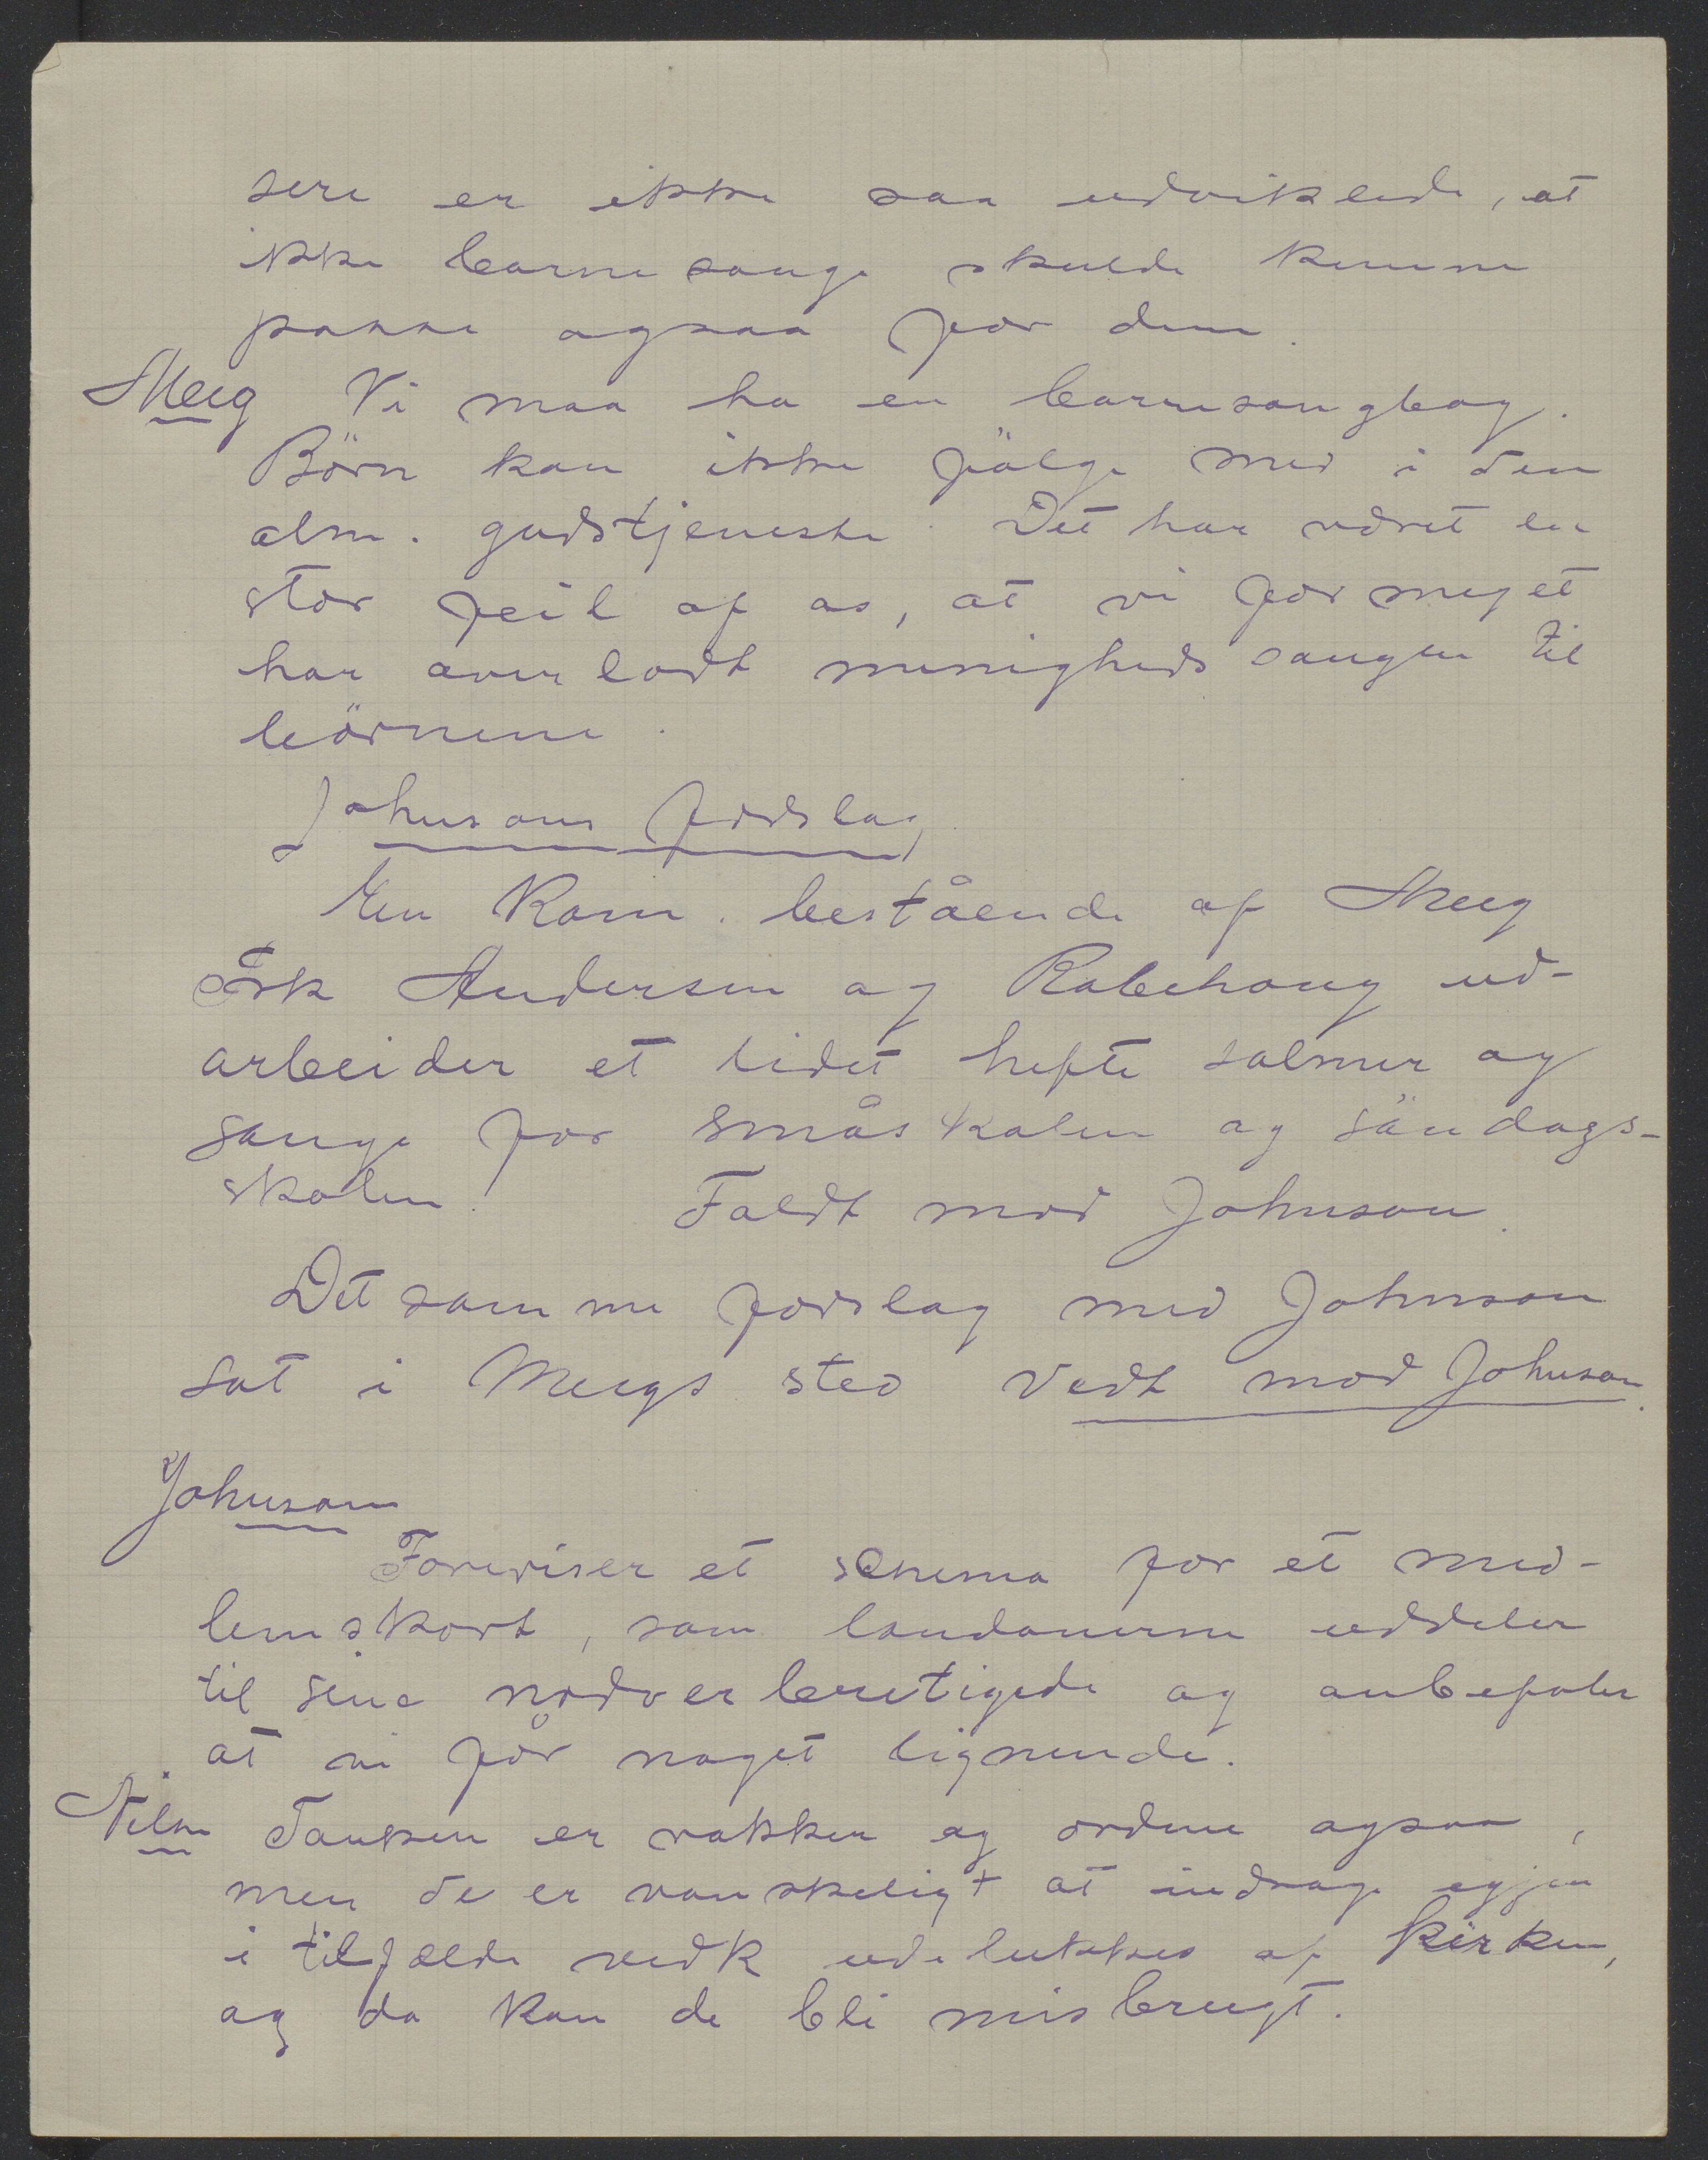 sere er ikke saa udviklede, at
ikke barnesange skulde kunne
passe ogsaa for dem.
Meeg Vi maa ha en barnesangbog.
Börn kan ikke følge med i den
alm. gudstjeneste. Det har været en
stor feil af os, at vi for meget
har overladt menighedssangen til
börnene.
Johnsons forslag
En Kom. bestående af Meeg
Frk Andersen og Rabehaug ud-
arbeider et lidet hefte salmer og
sange for småskolen og söndags-
skolen. Faldt mod Johnson.
Det samme forslag med Johnson
sat i Meegs sted Vedt mod Johnson.
Johnson
Foreviser et schema for et med-
lemskort, som londonerne uddeler
til sine nadverberetigede og anbefaler
at vi får noget lignende.
Nilsen Tanken er vakker og ordene ogsaa,
men de er vanskeligt at inddrage igjen
i tilfælde vedk udelukkes af kirken,
og da kan de bli misbrugt.